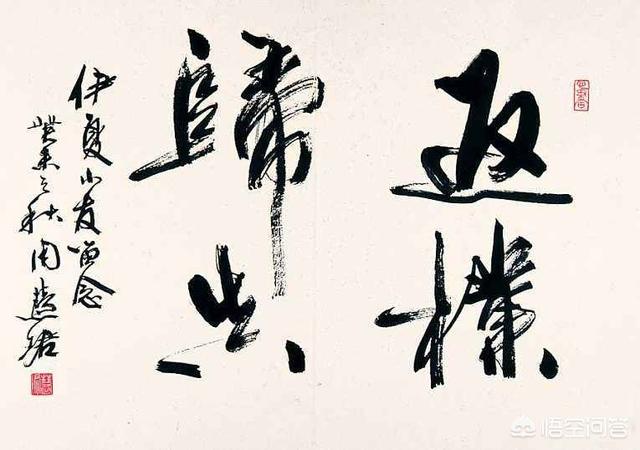 返樸
歸真
伊夏小友留念
癸未之秋周慧珺
悟空问答